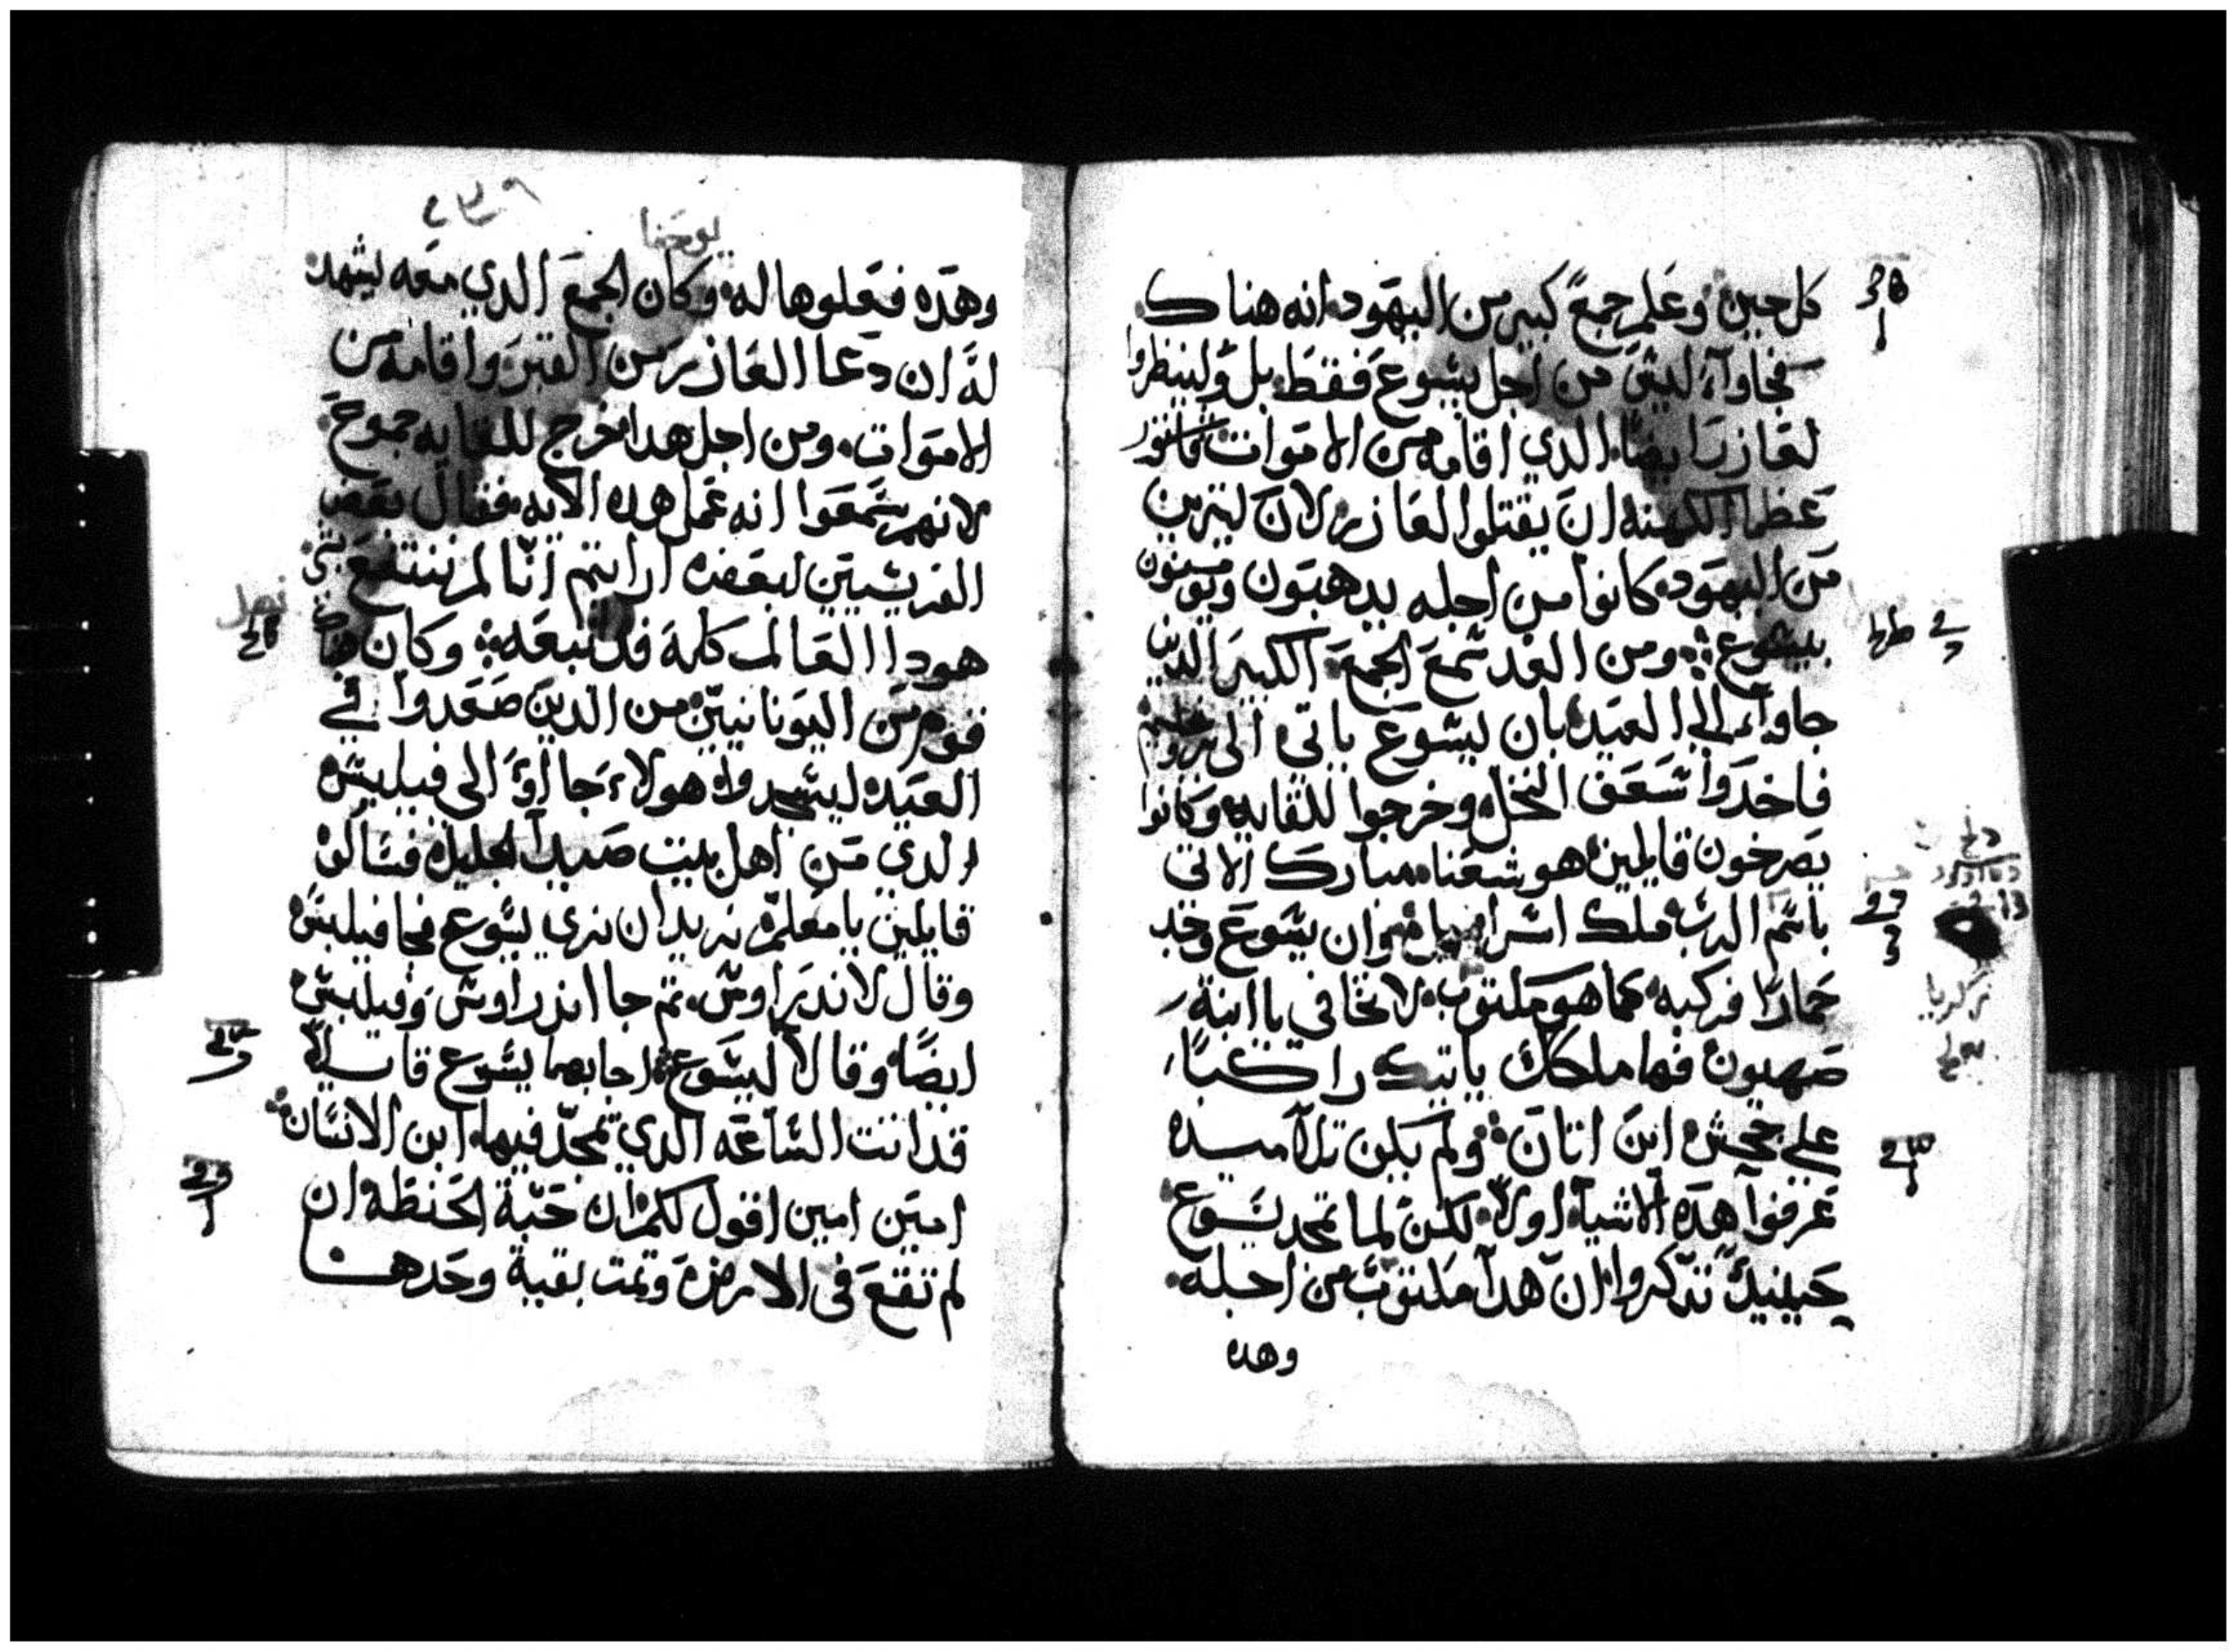 كل حين وعلم جمع كبير من اليهود انه هناك
فجاوآ ليس من اجل يسوع فقط بل ولينظروا
لعازر ايضا الدي اقامه من الاموات
عظما الكهنه ان يقتلوا لعازر لان كتيرين
من اليهود كانوا من اجله يدهبون ويومنون
بيسوع ومن الغد سمع الجمع الكبير الدين
جاوآ الي العيد بان يسوع ياتي الى يروشليم
فاخدوا سعف النخل وخرجوا للقايه وكانوا
يصرخون قايلين هوشعنا مبارك الاتي
باسم الرب ملك اسراييل وان يسوع وجد
حمارًا فركبه كما هو مكتوب لا تخافي يا ابنة
صهيون فها ملكك ياتيك راكبًا
علي جحش ابن اتان ولم يكن تلاميده
عرفوا هده الاشيآ اولا لكن لما تمجد يسوع
حينيد تدكروا ان هدا مكتوب من اجله
وهده
يوحنا
وهده فعلوها له وكان الجمع الدي معه يشهد
له ان دعا العازر من القبر واقامه من
الاموات ومن اجل هدا خرج للقايه جموع
لانهم سمعوا انه عمل هده الايه فقال بعض
الفريسيين لبعضه ارايتم انّا لم ننتفع بشي
هودا العالم كله قد تبعه وكان
قوم من اليونانيين من الدين صعدوا في
العيد ليسجدوا هولاء جااوَ الى فيلبس
الدي من اهل بيت صيدا الجليل فسالوه
قايلين يا معلم نريد ان نري يسوع فجا فيلبس
وقال لاندراوس تم جا اندراوس وفيلبس
ايضًا وقالا ليسوع اجابهما يسوع قايلا
قد اتت الساعه الدي يمجد فيها ابن الانسان
امين امين اقول لكم ان حبة الحنطه ان
لم تقع في الارض وتمت بقية وحدها